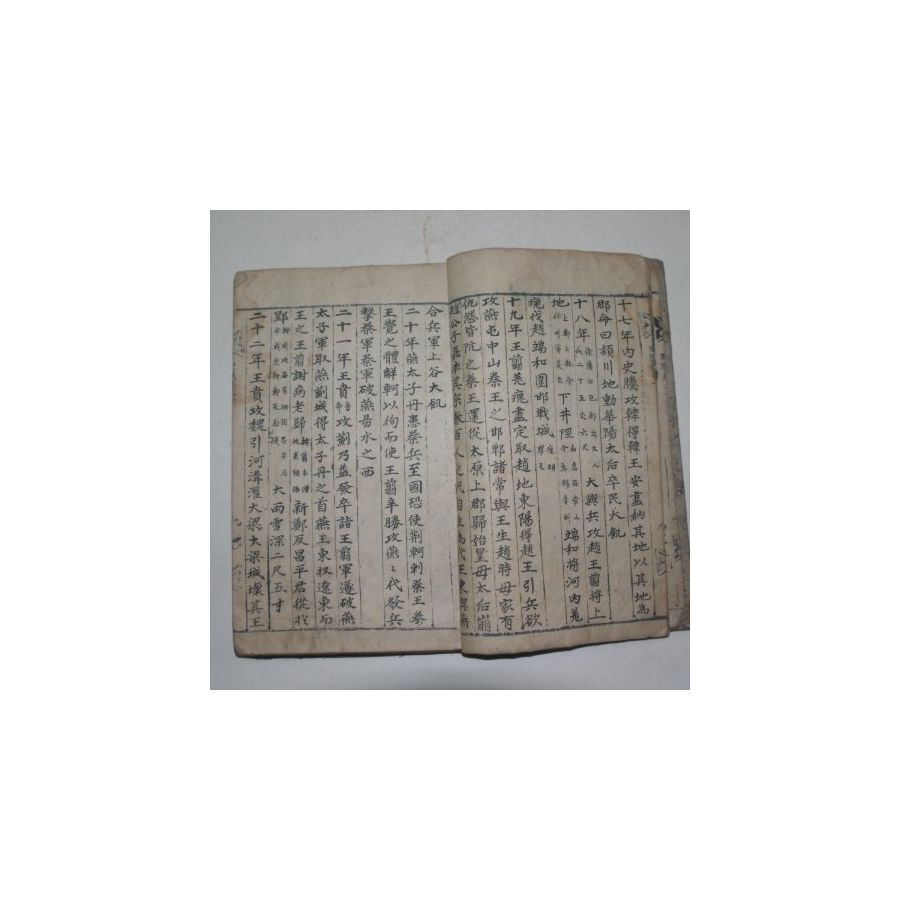 十七年內史騰攻韓得韓王安盡納其地以其地為
郡命曰穎川地動華陽太后卒民大飢
十八年大興兵攻趙王翦將上
地下井陘端和將河內羌
瘣伐趙端和圍邯鄲城
十九年王翦羌瘣盡定取趙地東陽得趙王引兵欲
攻燕屯中山秦王之邯鄲諸嘗與王生趙時母家有
仇怨皆阬之秦王還從太原上郡歸始皇母太后崩
趙公子嘉率其宗數百人之代自立為代王東與燕
合兵軍上谷大飢
二十年燕太子丹患秦兵至國恐使荆軻刺秦王秦
王覺之體觧軻以徇而使王翦辛勝攻燕燕代發兵
擊秦軍秦軍破燕易水之西
二十一年王賁攻薊乃益發卒詣王翦軍遂破燕
太子軍取燕薊城得太子丹之首燕王東収遼東而
王之王翦謝病老歸新鄭反昌平君從於
郢大雨雪深二尺五寸
二十二年王賁攻魏引河溝灌大梁大梁城壞其王